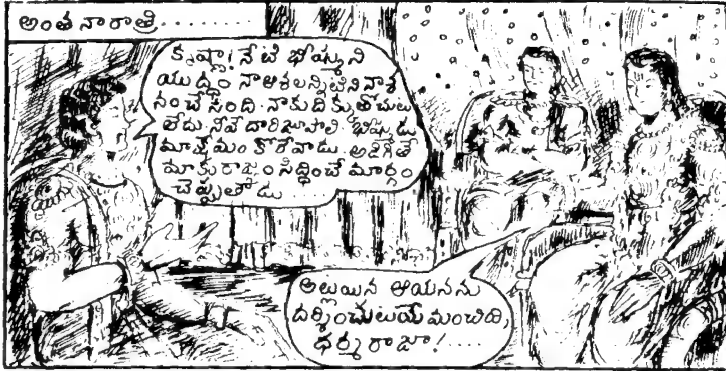 అంత నా రాత్రి..........
కృష్ణా! నేటి భీష్ముని
యుద్ధం నా ఆశలన్నిటిని నాశ
నంచేసింది. నాకు దిక్కుతోచుట
లేదు. నీవే దారిజూపాలి. భీష్ముడు
మా క్షేమం కోరేవాడు. అడిగితే
మాకు రాజ్యం సిద్ధించే మార్గం
చెప్పుతాడు....
అట్లయిన ఆయనను
దర్శించుటయే మంచిది,
ధర్మరాజా!....